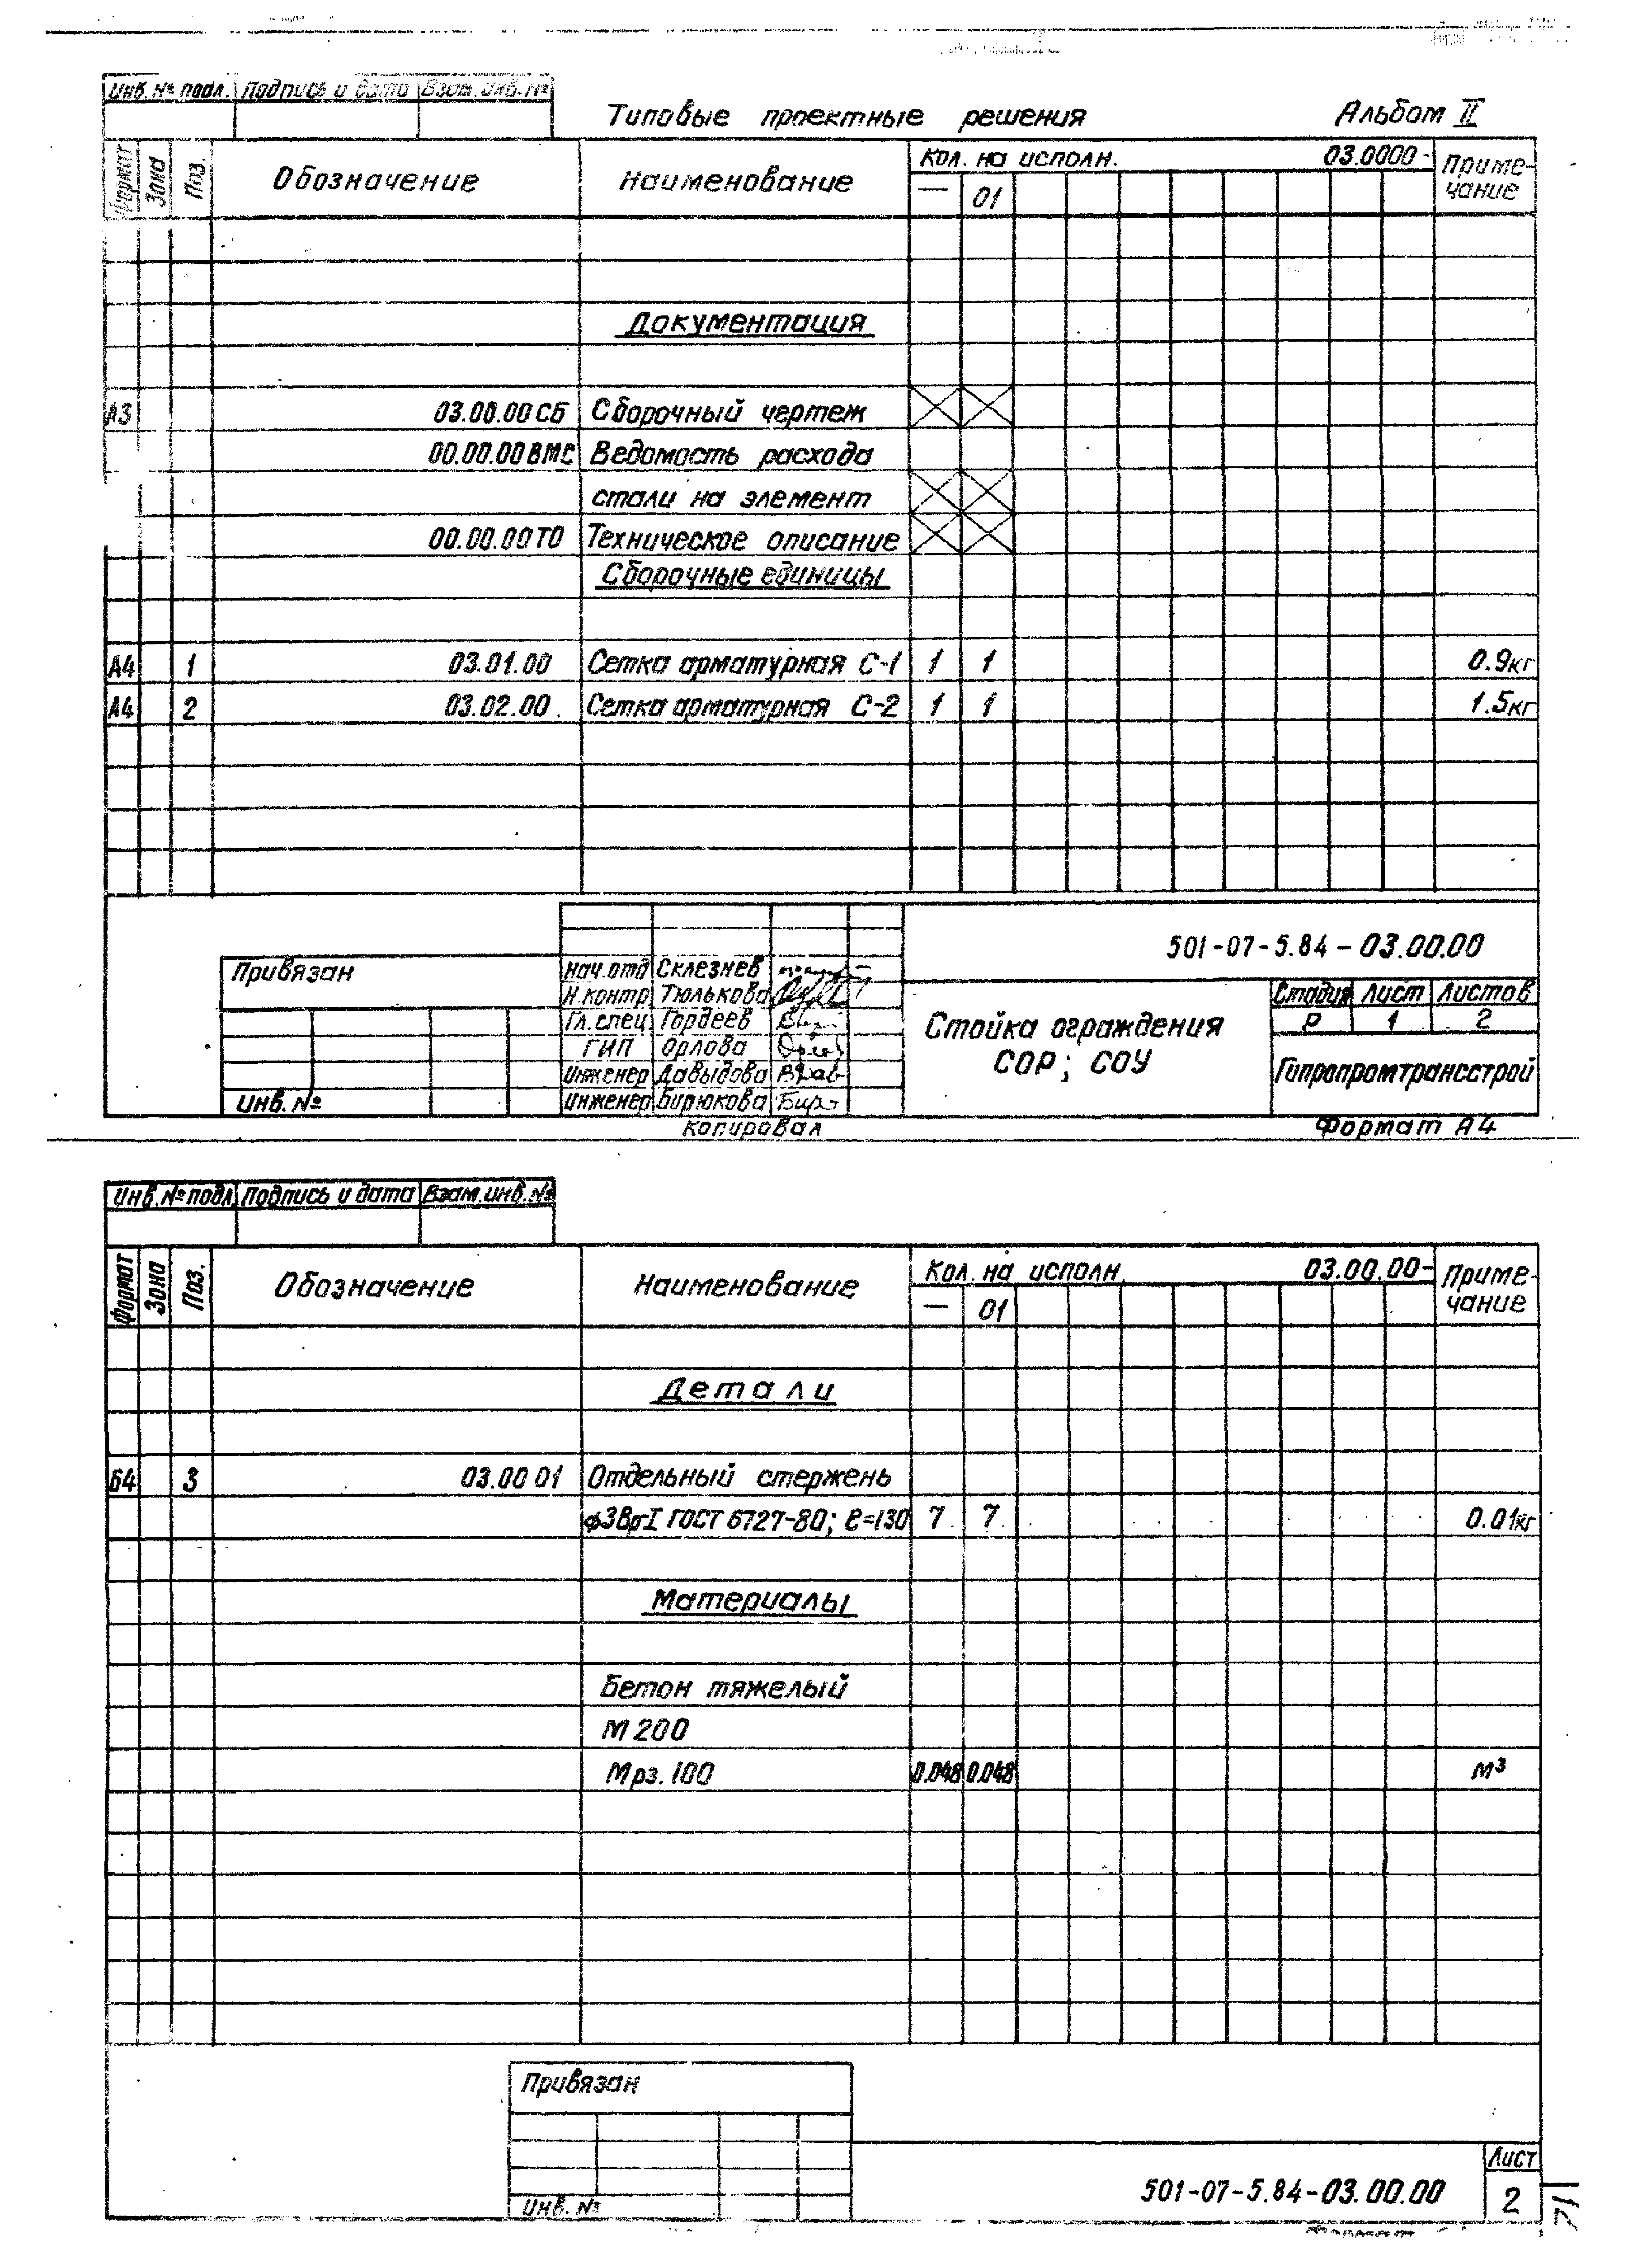 Инв. № подл. Подпись и дата Взам. инв. №
Типовые проектные решения Альбом II
Формат Зона Поз. Обозначение Наименование Кол. на исполн. 03.0000- Примечание
— 01
Документация
А3 03.00.00СБ Сборочный чертеж
00.00.00ВМС Ведомость расхода
стали на элемент
00.00.00ТО Техническое описание
Сборочные единицы
А4 1 03.01.00 Сетка арматурная С-1 1 1 0.9кг
А4 2 03.02.00 Сетка арматурная С-2 1 1 1.5кг
501-07-5.84-03.00.00
Привязан
Нач.отд Склезнев
Н.контр. Тюлькова
Гл.спец Гордеев
ГИП Орлова
Инженер Давыдова
Инженер Бирюкова
Инв. №
Стойка ограждения
СОР; СОУ
Стадия Лист Листов
Р 1 2
Гипропромтрансстрой
Копировал Формат А4
Инв. № подл Подпись и дата Взам. инв. №
Формат Зона Поз. Обозначение Наименование Кол. на исполн 03.00.00- Примечание
— 01
Детали
Б4 3 03.00 01 Отдельный стержень
ϕ3ВрI ГОСТ 6727-80; ℓ=130 7 7 0.01кг
Материалы
Бетон тяжелый
М 200
Мрз. 100 0.048 0.048 м³
Привязан
Инв. №
501-07-5.84-03.00.00
Лист
2